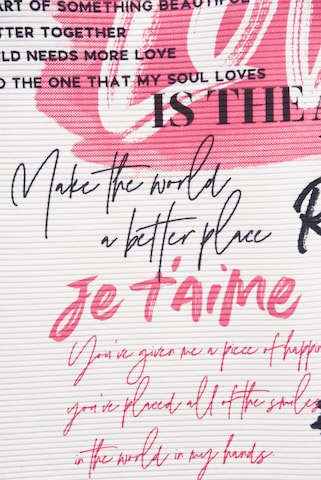 ART OF SOMETHING BEAUTIFUL
TTER TOGETHER
LD NEEDS MORE LOVE
O THE ONE THAT MY SOUL LOVES
IS THE
Make the world
a better place
Je t'aime
You've given me a piece of happin
you've placed all of the smiles
in the world in my hands.